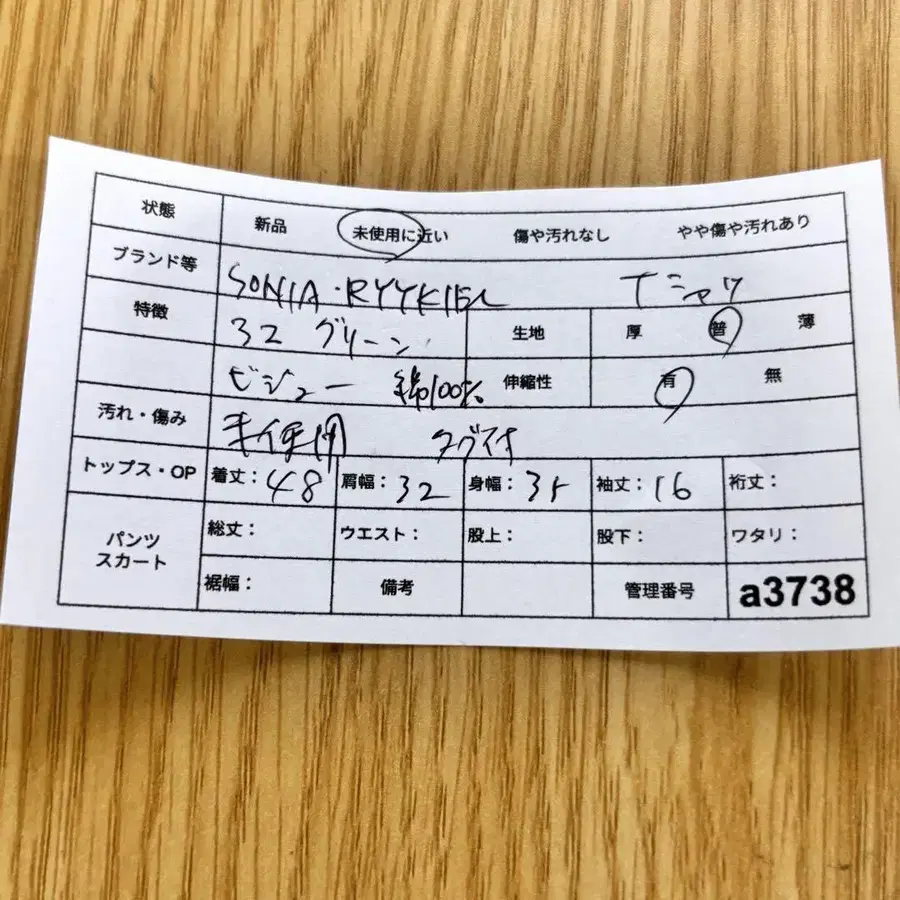 状態 新品 未使用に近い 傷や汚れなし やや傷や汚れあり
ブランド等 SONIA・RYYKIEL Tシャツ
特徴 32 グリーン 生地 厚 普 薄
ビジュー 綿100% 伸縮性 有 無
汚れ・傷み 未使用 タグ付
トップス・OP 着丈:48 肩幅:32 身幅: 袖丈:16 裄丈:
パンツ スカート 総丈: ウエスト: 股上: 股下: ワタリ:
裾幅: 備考 管理番号 a3738